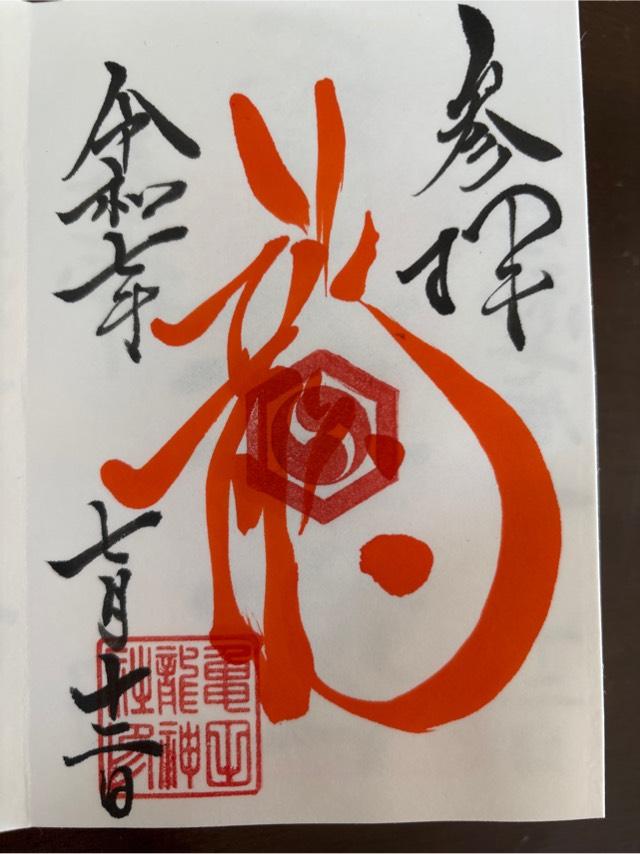 参拝
龍
令和七年
七月十二日
亀山
龍神
社印